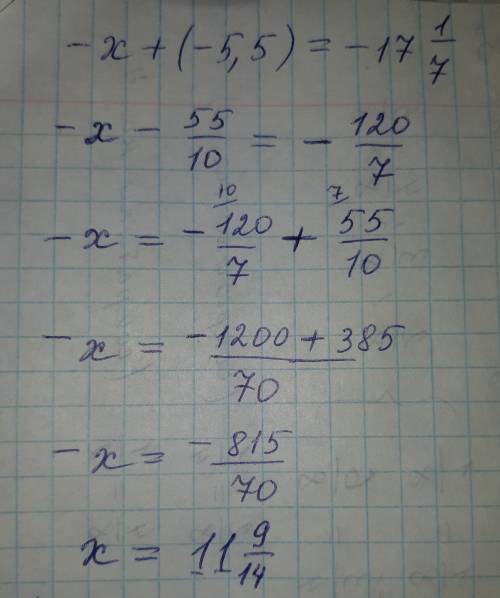 -x + (-5,5) = -17 1/7
-x - 55/10 = - 120/7
-x = - 120/7 (10) + 55/10 (7)
-x = (-1200 + 385)/70
-x = -815/70
x = 11 9/14